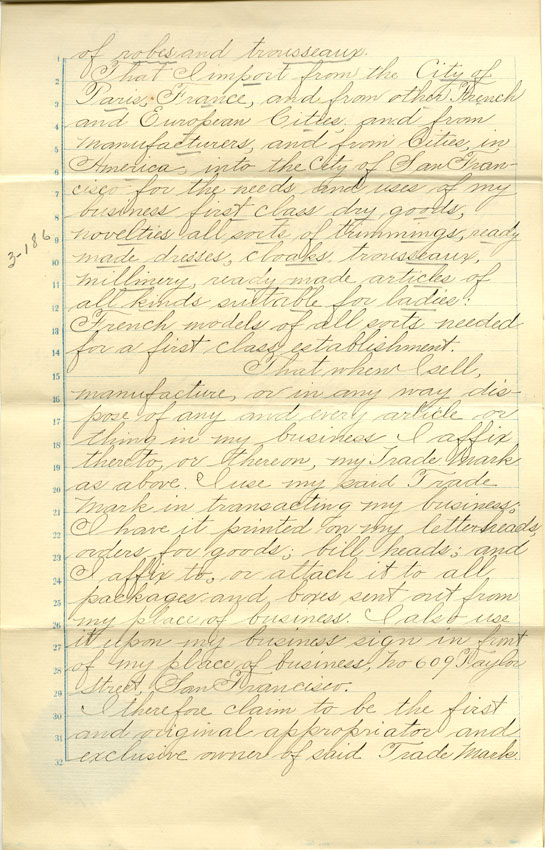 of robes and trousseaux.
1
That I import from the City of
2
Paris, France, and from other French
3
and European Cities, and from
4
manufacturers, and from Cities, in
5
America, into the City of San Fran-
6
cisco for the needs and uses of my
7
business first class dry goods,
8
novelties all sorts of trimmings, ready
9
made dresses, cloaks, trousseaux,
10
millinery, ready made articles of
11
all kinds suitable for ladies:
12
French models of all sorts needed
13
for a first class establishment.
14
That when I sell,
15
manufacture, or in any way dis-
16
pose of any and every article or
17
thing in my business I affix
18
thereto, or thereon, my Trade Mark
19
as above. I use my said Trade
20
Mark in transacting my business;
21
I have it printed on my letterheads,
22
orders for goods; bill heads; and
23
I affix to, or attach it to all
24
packages and boxes sent out from
25
my place of business. I also use
26
it upon my business sign in front
27
of my place of business, No 609 Taylor
28
Street, San Francisco.
29
I therefore claim to be the first
30
and original appropriator and
31
exclusive owner of said Trade Mark.
32
3-186